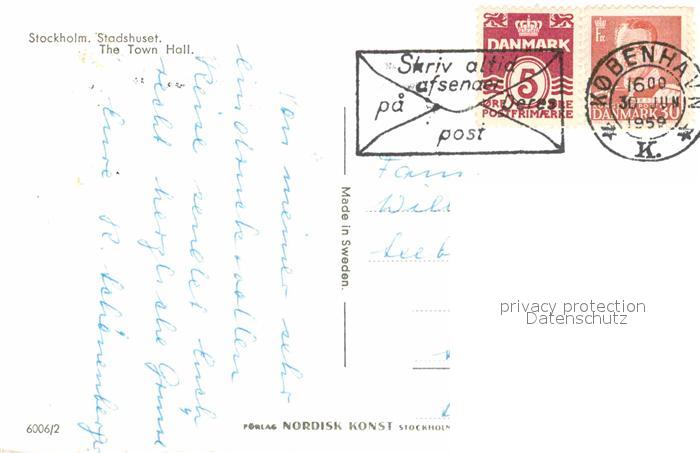 Stockholm. Stadshuset.
The Town Hall.
Von meiner sehr
eindrucksvollen
Reise sendet Euch
recht herzliche Grüsse
Eure
Skriv altid
afsender
på Deres
post
DANMARK
5
ØRE
POSTFRIMÆRKE
DANMARK 30
KØBENHAVN
1600
30 JUN
1959
K.
Fam.
Made in Sweden.
privacy protection
Datenschutz
6006/2
FÖRLAG NORDISK KONST STOCKHOLM